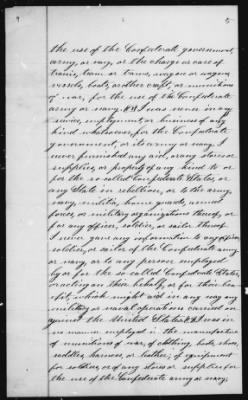 5
the use of the Confederate government,
army, or navy, or the charge or care of
trains, team or teams, wagon or wagons
vessels, boats, or other craft, or munitions
of war, for the use of the Confederate
army or navy. I was never in any
service, employment, or business of any
kind whatsoever, for the Confederate
government, or its army or navy. I
never furnished any aid, or any stores or
supplies, or property of any kind to or
for the so called Confederate States, or
any State in rebellion, or to the army,
navy, militia, home guards, armed
forces, or military organizations thereof, or
for any officer, soldier, or sailor thereof.
I never gave any information to any officer
soldier, or sailor of the Confederate army
or navy, or to any person employed
by or for the so called Confederate States,
or acting on their behalf, or for their bene-
fit, which might aid in any way any
military or naval operations carried on
against the United States. I was in
no manner employed in the manufacture
of munitions of war, of clothing, boots, shoes,
saddles, harness, or leather, of equipment
for soldiers or of any stores or supplies for
the use of the Confederate army or navy,